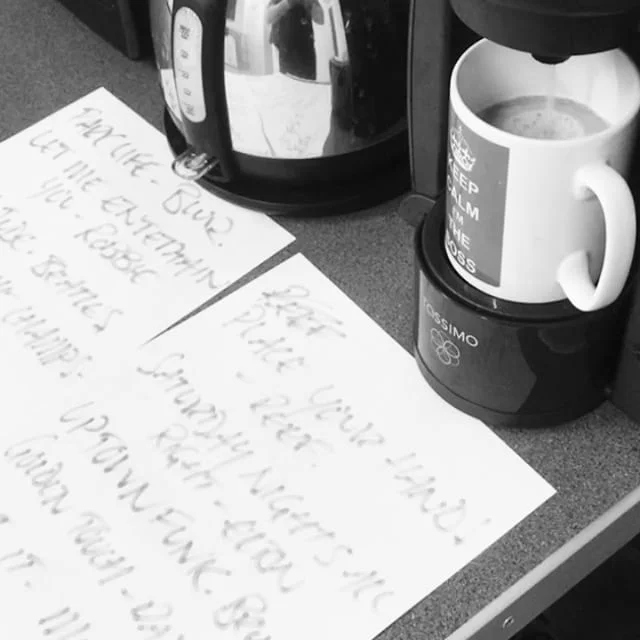 PARKLIFE - BLUR.
LET ME ENTERTAIN
YOU - ROBBIE
- BEATLES
CHAMPS.
REEF
PLACE YOUR HANDS
- REEF.
SATURDAY NIGHT'S
RIGHT - ELTON
UPTOWN FUNK.
GOLDEN TOUCH -
IT.
KEEP
CALM
I'M
THE
BOSS
TASSIMO